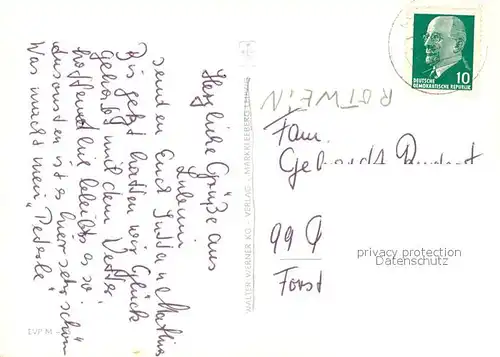 Herzliche Grüße aus
Lubmin
senden Euch Jutta u. Mathias
Bis jetzt hatten wir Glück
gehabt mit dem Wetter,
hoffentlich bleibt es so.
Ansonsten ist es hier sehr schön
Was macht mein "Peterle"
EVP M
WALTER WERNER KG - VERLAG - MARKKLEEBERG
DEUTSCHE
DEMOKRATISCHE REPUBLIK
10
ROTWEIN
Fam.
Gebhardt
99
Forst
privacy protection
Datenschutz